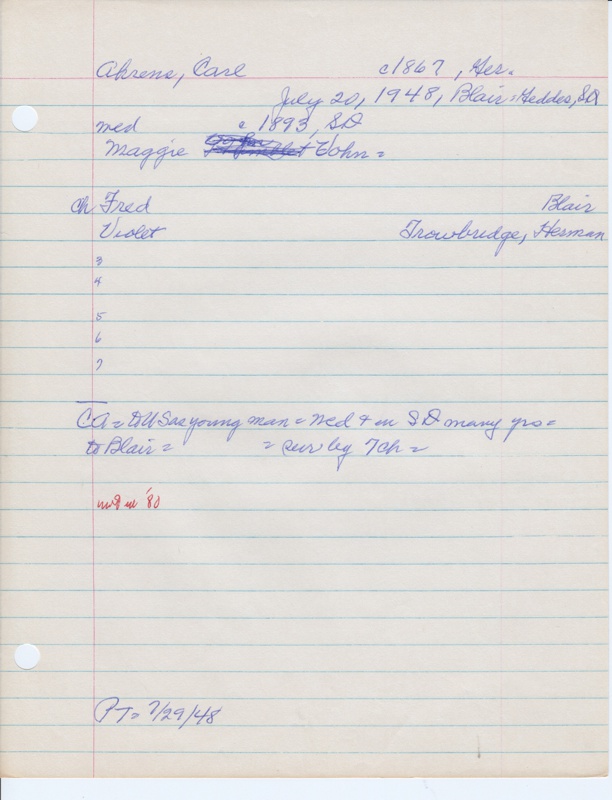 Ahrens, Carl c1867, Ger.
July 20, 1948, Blair = Geddes, SD
med c 1893, SD
Maggie John =
ch Fred Blair
Violet Trowbridge, Herman
3
4
5
6
7
CA = to US as young man = med & in SD many yrs =
to Blair = = sur by 7 ch =
in '80
PT = 7/29/48